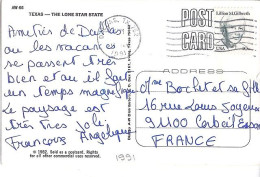 JW-64
TEXAS — THE LONE STAR STATE
POST
CARD
ADDRESS
Amitiés de Dallas
ou les vacances
se passent très
bien et ou il fait
un temps magnifique
Le paysage est
très très joli
Françoise Angélique
Mme Borchet et sa fille
16 rue Louis
91100 Corbeil Essonnes
FRANCE
© 1982. Sold as a postcard. Rights
for all other commercial uses reserved.
1991